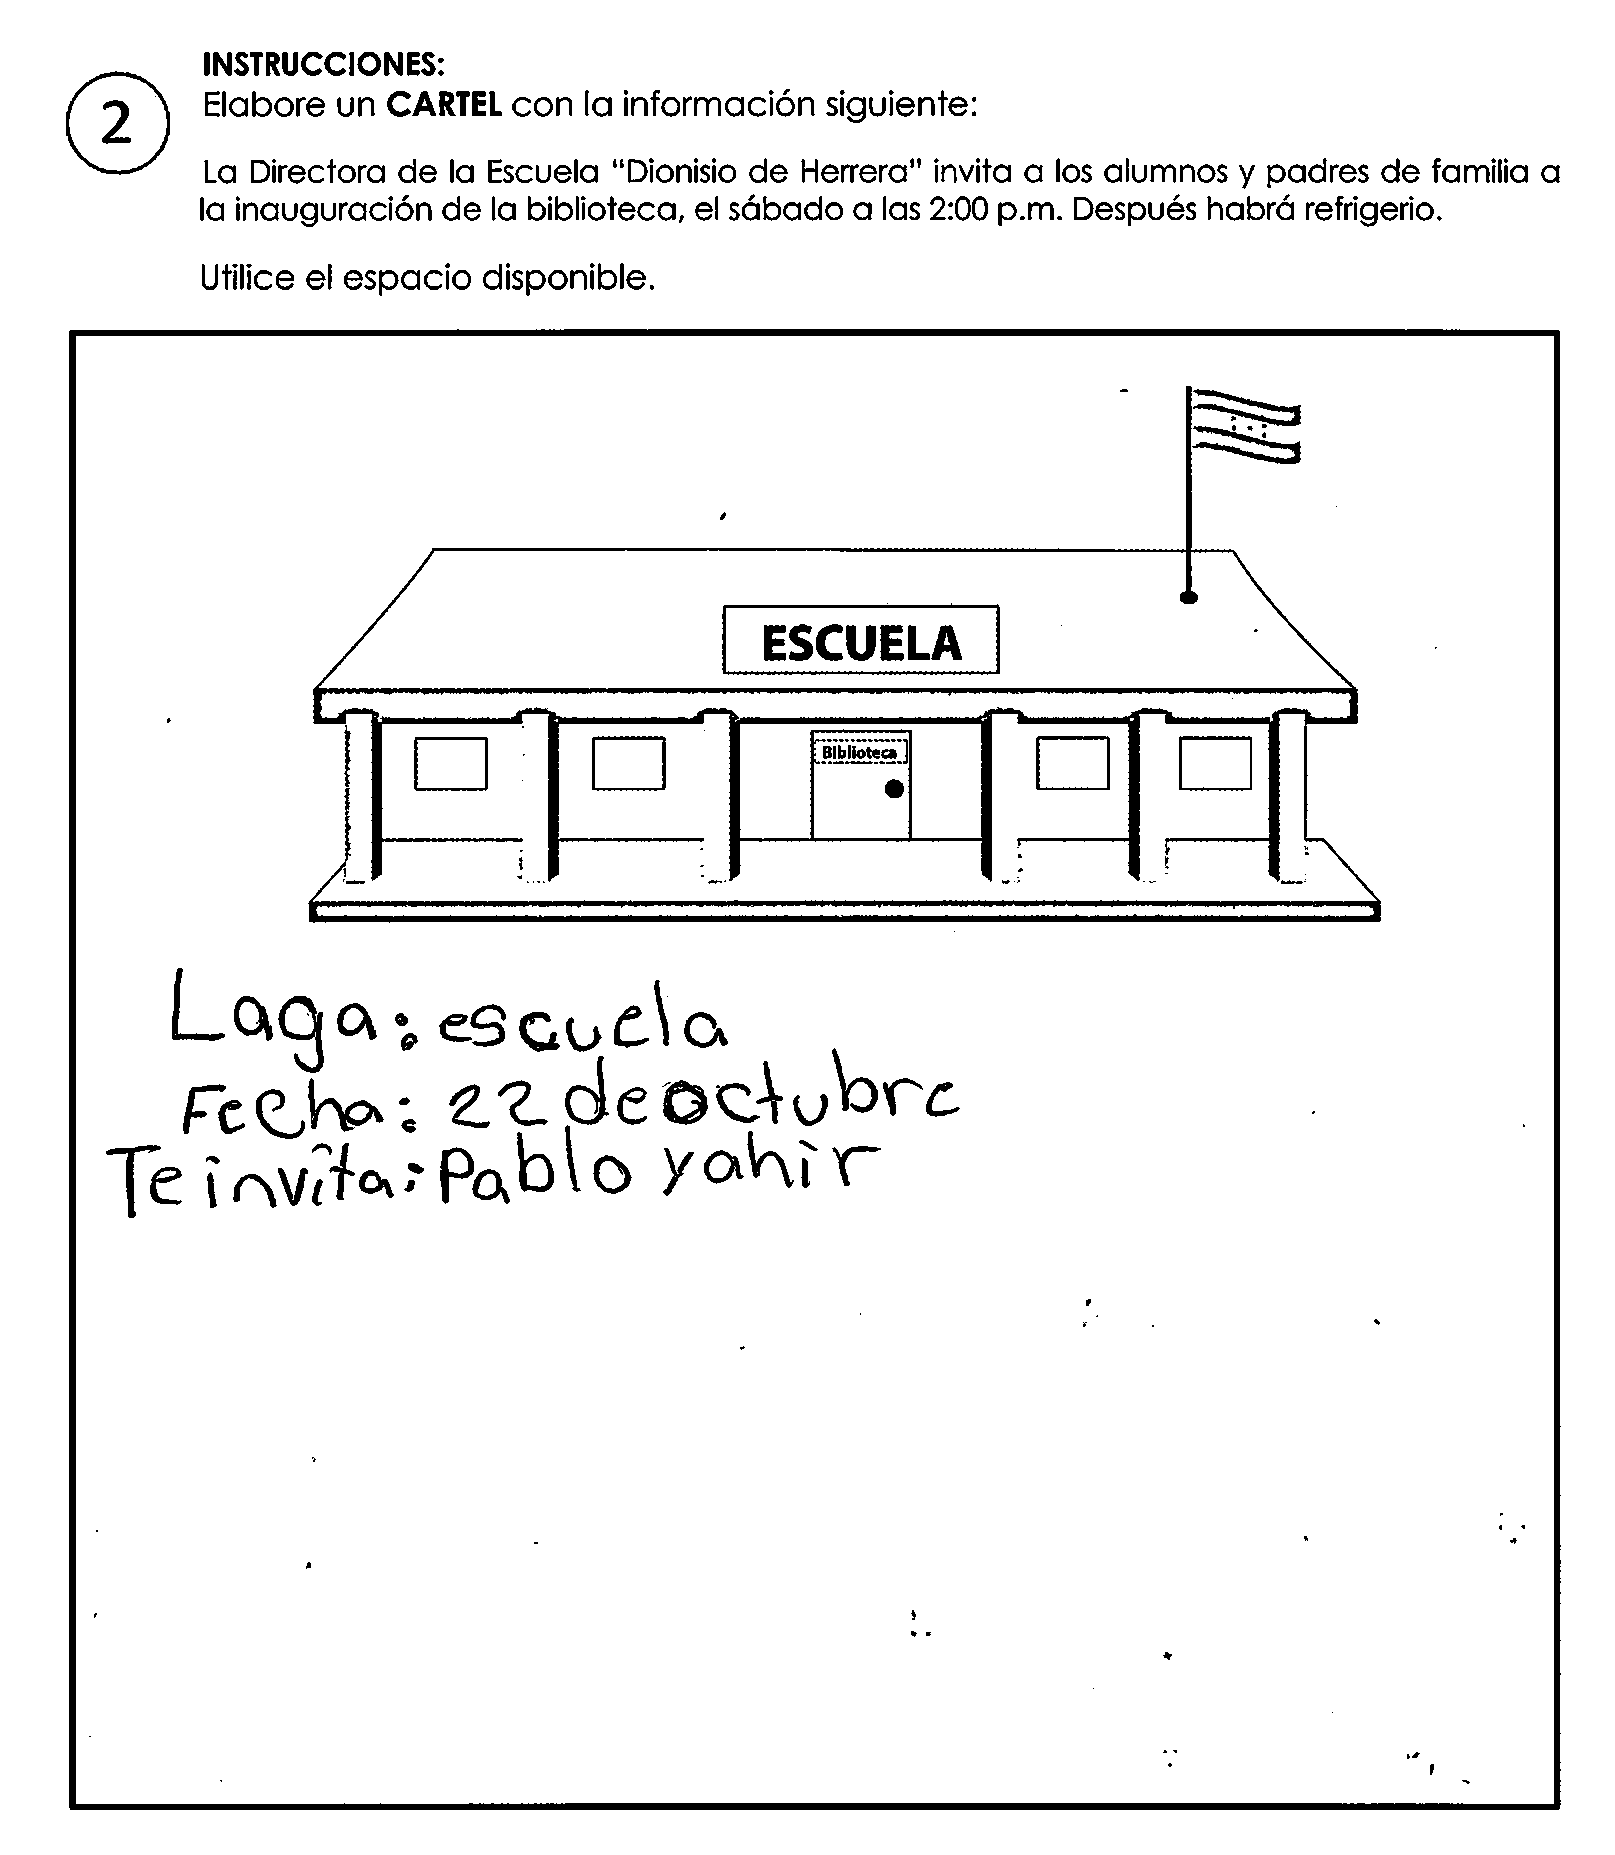 INSTRUCCIONES:
2
Elabore un CARTEL con la información siguiente:
La Directora de la Escuela "Dionisio de Herrera" invita a los alumnos y padres de familia a
la inauguración de la biblioteca, el sábado a las 2:00 p.m. Después habrá refrigerio.
Utilice el espacio disponible.
ESCUELA
Biblioteca
Laga: escuela
Fecha: 22 de octubre
Te invita: Pablo yahir